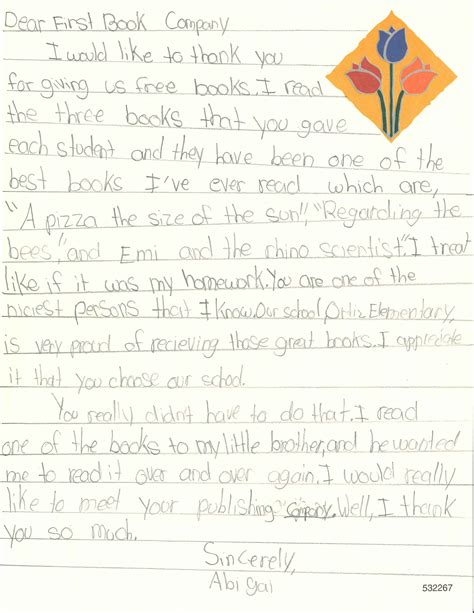 Dear First Book Company
I would like to thank you
for giving us free books. I read
the three books that you gave
each student and they have been one of the
best books I've ever read which are,
"A pizza the size of the sun", "Regarding the
bees," and Emi and the rhino scientist". I treat
like if it was my homework. You are one of the
niciest persons that I know. Our school Ortiz Elementary,
is very proud of recieving those great books. I appriciate
it that you choose our school.
You really didn't have to do that. I read
one of the books to my little brother, and he wanted
me to read it over and over again. I would really
like to meet your publishing company. Well, I thank
you so much.
Sincerely,
Abigai
532267